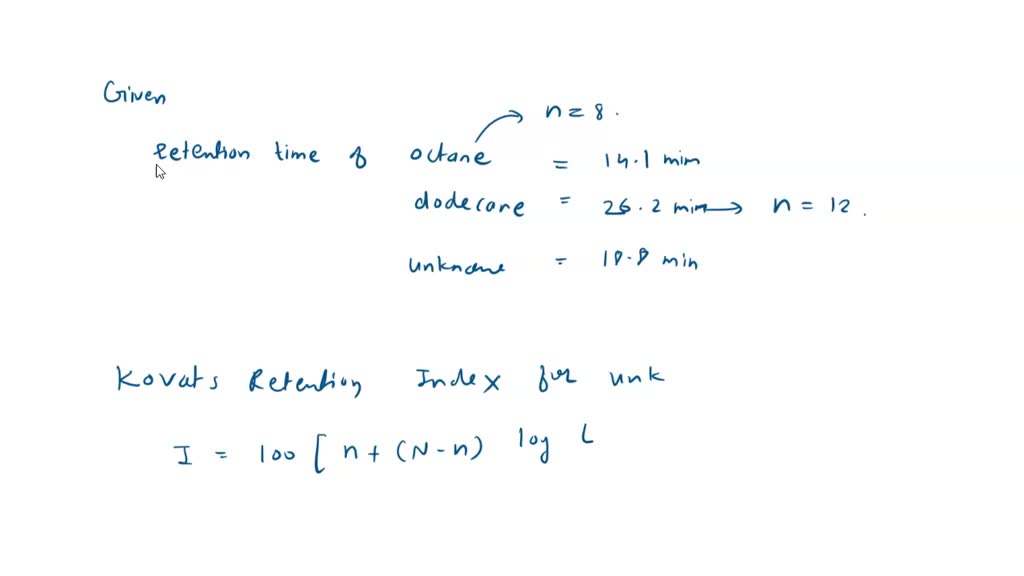 Given
n = 8 .
retention time of octane = 14.1 min
dodecane = 26.2 min → n = 12 .
unknone = 18.8 min
Kovats Retention Index for unk
I = 100 [ n + (N - n) log (